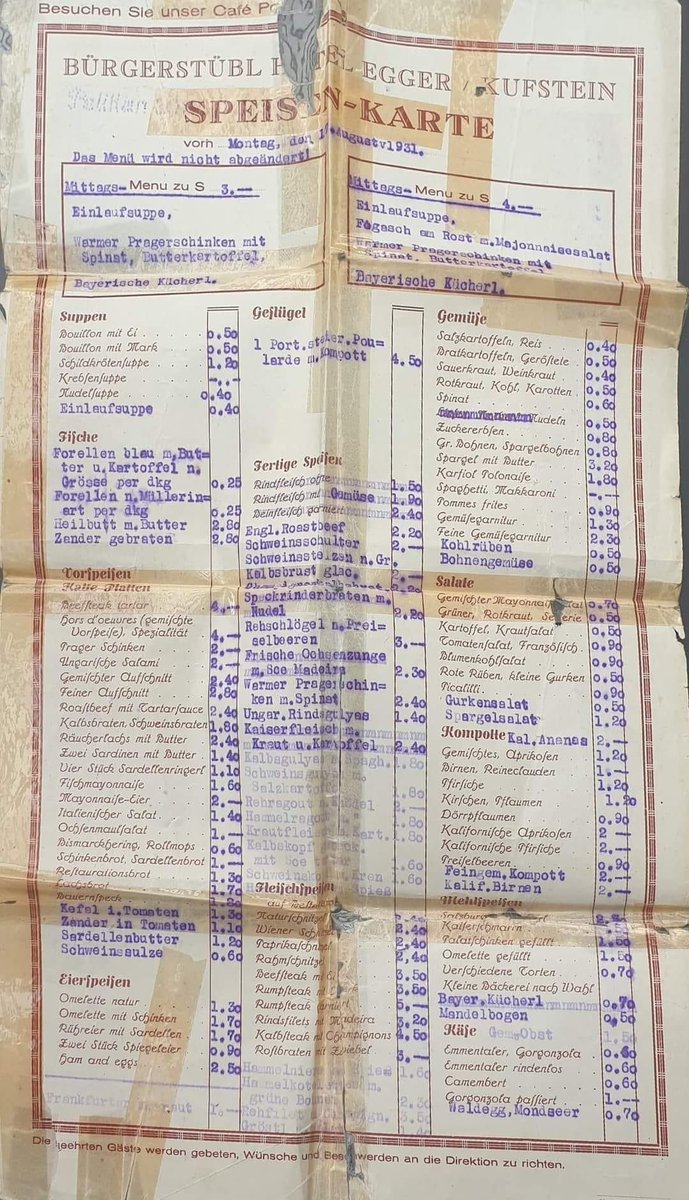 Besuchen Sie unser Café
BÜRGERSTÜBL HOTEL EGGER / KUFSTEIN
SPEISEN-KARTE
vom Montag, den August 1931.
Das Menü wird nicht abgeändert!
Mittags- Menu zu S 3.—
Einlaufsuppe,
Warmer Pragerschinken mit
Spinat, Butterkartoffel,
Bayerische Kücherl.
Mittags- Menu zu S 4.—
Einlaufsuppe,
Fogasch am Rost m.Majonnaisesalat
Warmer Pragerschinken mit
Spinat, Butterkartoffel
Bayerische Kücherl.
Suppen
Bouillon mit Ei 0.50
Bouillon mit Mark 0.50
Schildkrötensuppe 1.20
Krebsensuppe -.-
Nudelsuppe 0.40
Einlaufsuppe 0.40
Fische
Forellen blau m.But=
ter u.Kartoffel n.
Grösse per dkg 0.25
Forellen n.Müllerin=
art per dkg 0.25
Heilbutt m.Butter 2.80
Zander gebraten 2.80
Vorspeisen
Kalte Platten
Beefsteak tartar 4.—
Hors d'oeuvres (gemischte
Vorspeise), Spezialität 4.—
Prager Schinken 2.—
Ungarische Salami 2.—
Gemischter Aufschnitt 2.40
Feiner Aufschnitt 2.80
Roastbeef mit Tartarsauce 2.40
Kalbsbraten, Schweinsbraten 1.80
Räucherlachs mit Butter 2.40
Zwei Sardinen mit Butter 1.40
Vier Stück Sardellenringerl 1.10
Fischmayonnaise 1.60
Mayonnaise-Eier 2.—
Italienischer Salat 1.40
Ochsenmaulsalat 1.—
Bismarckhering, Rollmops 0.60
Schinkenbrot, Sardellenbrot 1.—
Restaurationsbrot 1.30
Lachsbrot 1.70
Bauernspeck
Kefal i.Tomaten 1.30
Zander in Tomaten 1.10
Sardellenbutter 1.20
Schweinssulze 0.60
Eierspeisen
Omelette natur 1.30
Omelette mit Schinken 1.70
Rühreier mit Sardellen 1.70
Zwei Stück Spiegeleier 0.90
Ham and eggs 2.50
Geflügel
1 Port.steier.Pou=
larde m.Kompott 4.50
Fertige Speisen
Rindfleisch 1.50
Rindfleisch mit Gemüse 1.90
Beinfleisch garniert 2.40
Engl.Rostbeef 2.20
Schweinsschulter 2.—
Schweinsstelzen n.Gr.
Kalbsbrust glac. 2.20
Speckrinderbraten m.
Nudel 2.20
Rehschlögel n.Prei=
selbeeren 3.—
Frische Ochsenzunge
m.Sce Madeira 2.30
Warmer Prager Schin=
ken m.Spinat 2.40
Ungar.Rindsgulyas 1.40
Kaiserfleisch m.
Kraut u.Kartoffel 2.40
Kalbsgulyas m.Spagh. 1.80
Schweinsgulyas m.
Salzkartoffel 1.80
Rehragout m.Knödel 2.—
Fleischspeisen
Naturschnitzel 2.40
Wiener Schnitzel 2.40
Paprikaschnitzel 2.40
Rahmschnitzel 2,40
Beefsteak mit Ei 3.50
Rumpsteak 3.50
Rumpsteak garniert 5.—
Rindsfilets mit Madeira 3.20
Kalbsteak mit Champignons 4.50
Rostbraten mit Zwiebel 3.—
Gemüse
Salzkartoffeln, Reis 0.40
Bratkartoffeln, Geröstete 0.50
Sauerkraut, Weinkraut 0.40
Rotkraut, Kohl, Karotten 0.50
Spinat 0.60
Nudeln 0.50
Zuckererbsen 0.80
Gr. Bohnen, Spargelbohnen 0.80
Spargel mit Butter 3.20
Karfiol Polonaise 1.80
Spaghetti, Makkaroni -.—
Pommes frites 0.90
Gemüsegarnitur 1.30
Feine Gemüsegarnitur 2.30
Kohlrüben 0.50
Bohnengemüse 0.50
Salate
Gemischter Mayonnaisesalat 0.70
Grüner, Rotkraut, Sellerie 0.50
Kartoffel, Krautsalat 0.50
Tomatensalat, Französisch 0.90
Blumenkohlsalat 0.90
Rote Rüben, kleine Gurken 0.50
Picalilli 0.90
Gurkensalat 0.50
Spargelsalat 1.20
Kompotte Kal.Ananas 2.—
Gemischtes, Aprikosen 1.20
Birnen, Reineclauden 1.—
Pfirsiche 1.20
Kirschen, Pflaumen 1.20
Dörrpflaumen 0.90
Kalifornische Aprikosen 2 —
Kalifornische Pfirsiche 2.—
Preiselbeeren 0.90
Feingem.Kompott 2.—
Kalif.Birnen 2.—
Mehlspeisen
Kaiserschmarrn 2.—
Palatschinken gefüllt 1.50
Omelette gefüllt 1.50
Verschiedene Torten 0.70
Kleine Bäckerei nach Wahl
Bayer.Kücherl 0.70
Mandelbogen 0.50
Käse Gem.Obst 1.50
Emmentaler, Gorgonzola 0.60
Emmentaler rindenlos 0.60
Camembert 0.60
Gorgonzola passiert 1.—
Waldegg,Mondseer 0.70
Die geehrten Gäste werden gebeten, Wünsche und Beschwerden an die Direktion zu richten.